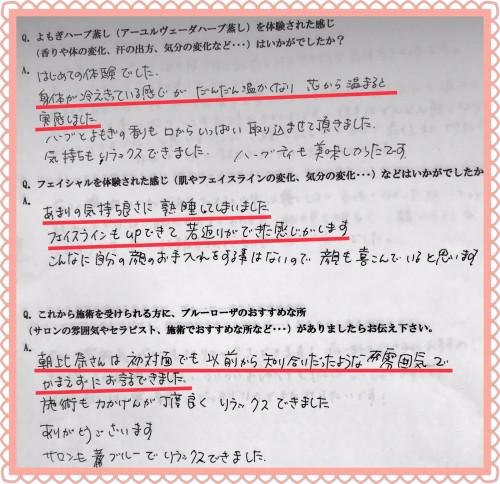 Q. よもぎハーブ蒸し（アーユルヴェーダハーブ蒸し）を体験された感じ
（香りや体の変化、汗の出方、気分の変化など・・・）はいかがでしたか？
A. はじめての体験でした.
身体が冷えきている感じが だんだん温かくなり 芯から温まると
実感しました
ハーブとよもぎの香りも 口からいっぱい 取り込ませて頂きました.
気持ちもリラックスできました. ハーブティも美味しかったです
Q. フェイシャルを体験された感じ（肌やフェイスラインの変化、気分の変化・・・）などはいかがでしたか
A.
あまりの気持良さに 熟睡してしまいました
フェイスラインもupできて 若返りができた感じがします
こんなに自分の顔のお手入れをする事はないので 顔も喜こんでいると思います
Q. これから施術を受けられる方に、ブルーローザのおすすめな所
（サロンの雰囲気やセラピスト、施術でおすすめな所など・・・）がありましたらお伝え下さい。
A.
朝比奈さんは 初対面でも 以前から 知り合いだったような 雰囲気で
かまえずにお話できました.
施術も 力かげんが 丁度良く リラックスできました
ありがとうございます
サロンも ブルーで リラックスできました.